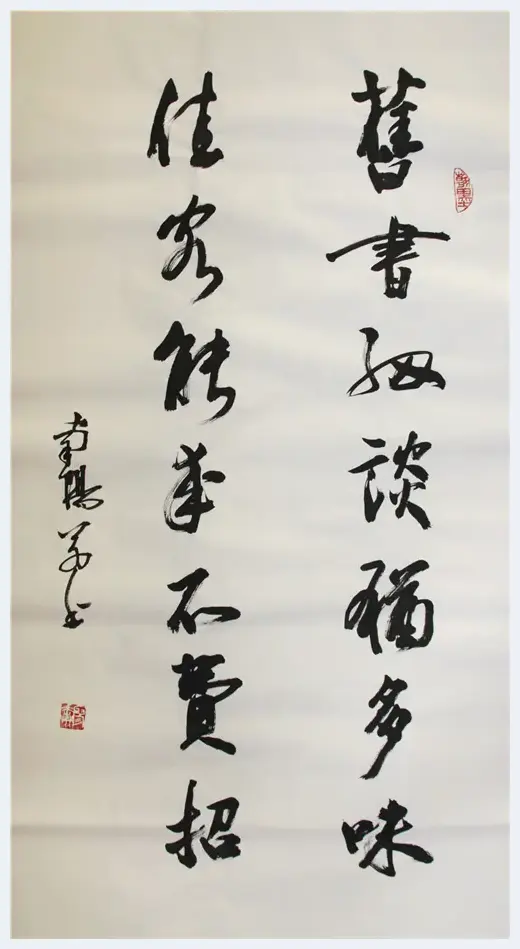 舊書細談猶多味
佳客能來不費招
南陽